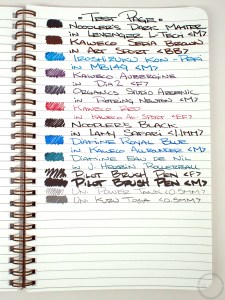 "Test Page"
Noodler's Dark Matter
in Levenger L-Tech <M>
Kaweco Sepia Brown
in Art Sport <BB>
Iroshizuku Kon-Peki
in MB149 <M>
Kaweco Aubergine
in Dia2 <F>
Organics Studio Arsenic
in Rotring Newton <M>
Kaweco Red
in Kaweco Al-Sport <EF>
Noodler's Black
in Lamy Safari <1.1mm>
Diamine Royal Blue
in Kaweco Allrounder <M>
Diamine Eau de Nil
in J. Herbin Rollerball
Pilot Brush Pen <F>
Pilot Brush Pen <M>
Uni Power Tank <0.5mm>
Uni Kuru Toga <0.5mm>